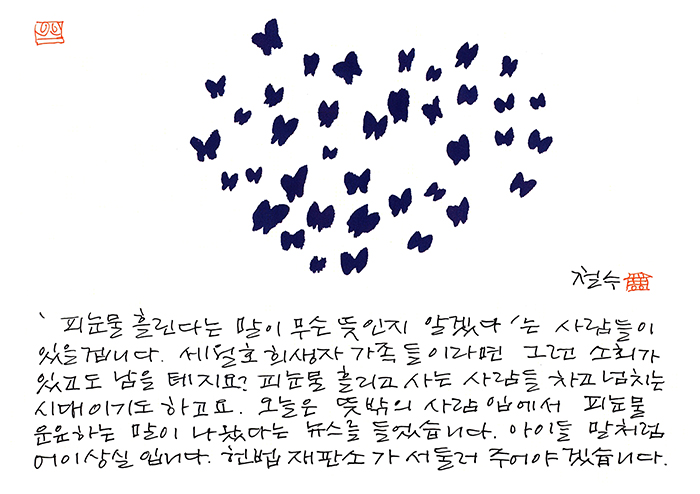 철수
' 피눈물 흘린다는 말이 무슨 뜻인지 알겠다 '는 사람들이
있을겁니다. 세월호 희생자 가족들이라면 그런 소회가
있고도 남을 테지요? 피눈물 흘리고 사는 사람들 차고 넘치는
시대이기도 하고요. 오늘은 뜻밖의 사람 입에서 피눈물
운운하는 말이 나왔다는 뉴스를 들었습니다. 아이들 말처럼
어이상실 입니다. 헌법 재판소가 서둘러 주어야 겠습니다.